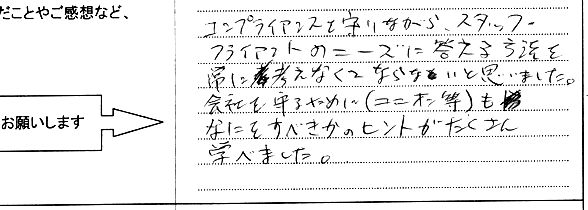 だことやご感想など、
お願いします
コンプライアンスを守りながら、スタッフ・
クライアントのニーズに答える方法を
常に考えなくてならないと思いました。
会社を守るために(ユニオン等)も
なにをすべきかのヒントがたくさん
学べました。